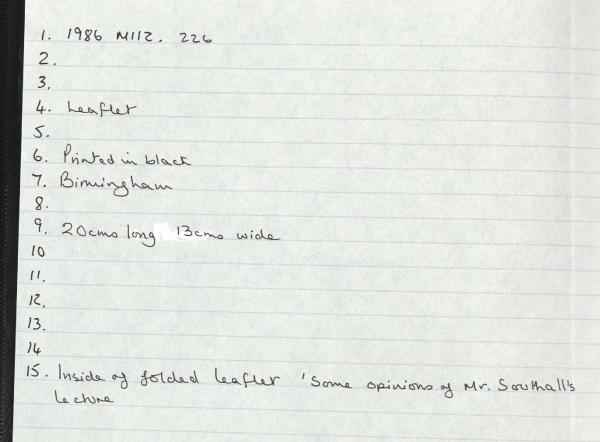 1. 1986 M112. 226
2.
3.
4. Leaflet
5.
6. Printed in black
7. Birmingham
8.
9. 20cms long 13cms wide
10
11.
12.
13.
14
15. Inside of folded leaflet 'Some opinions of Mr. Southall's
Lecture